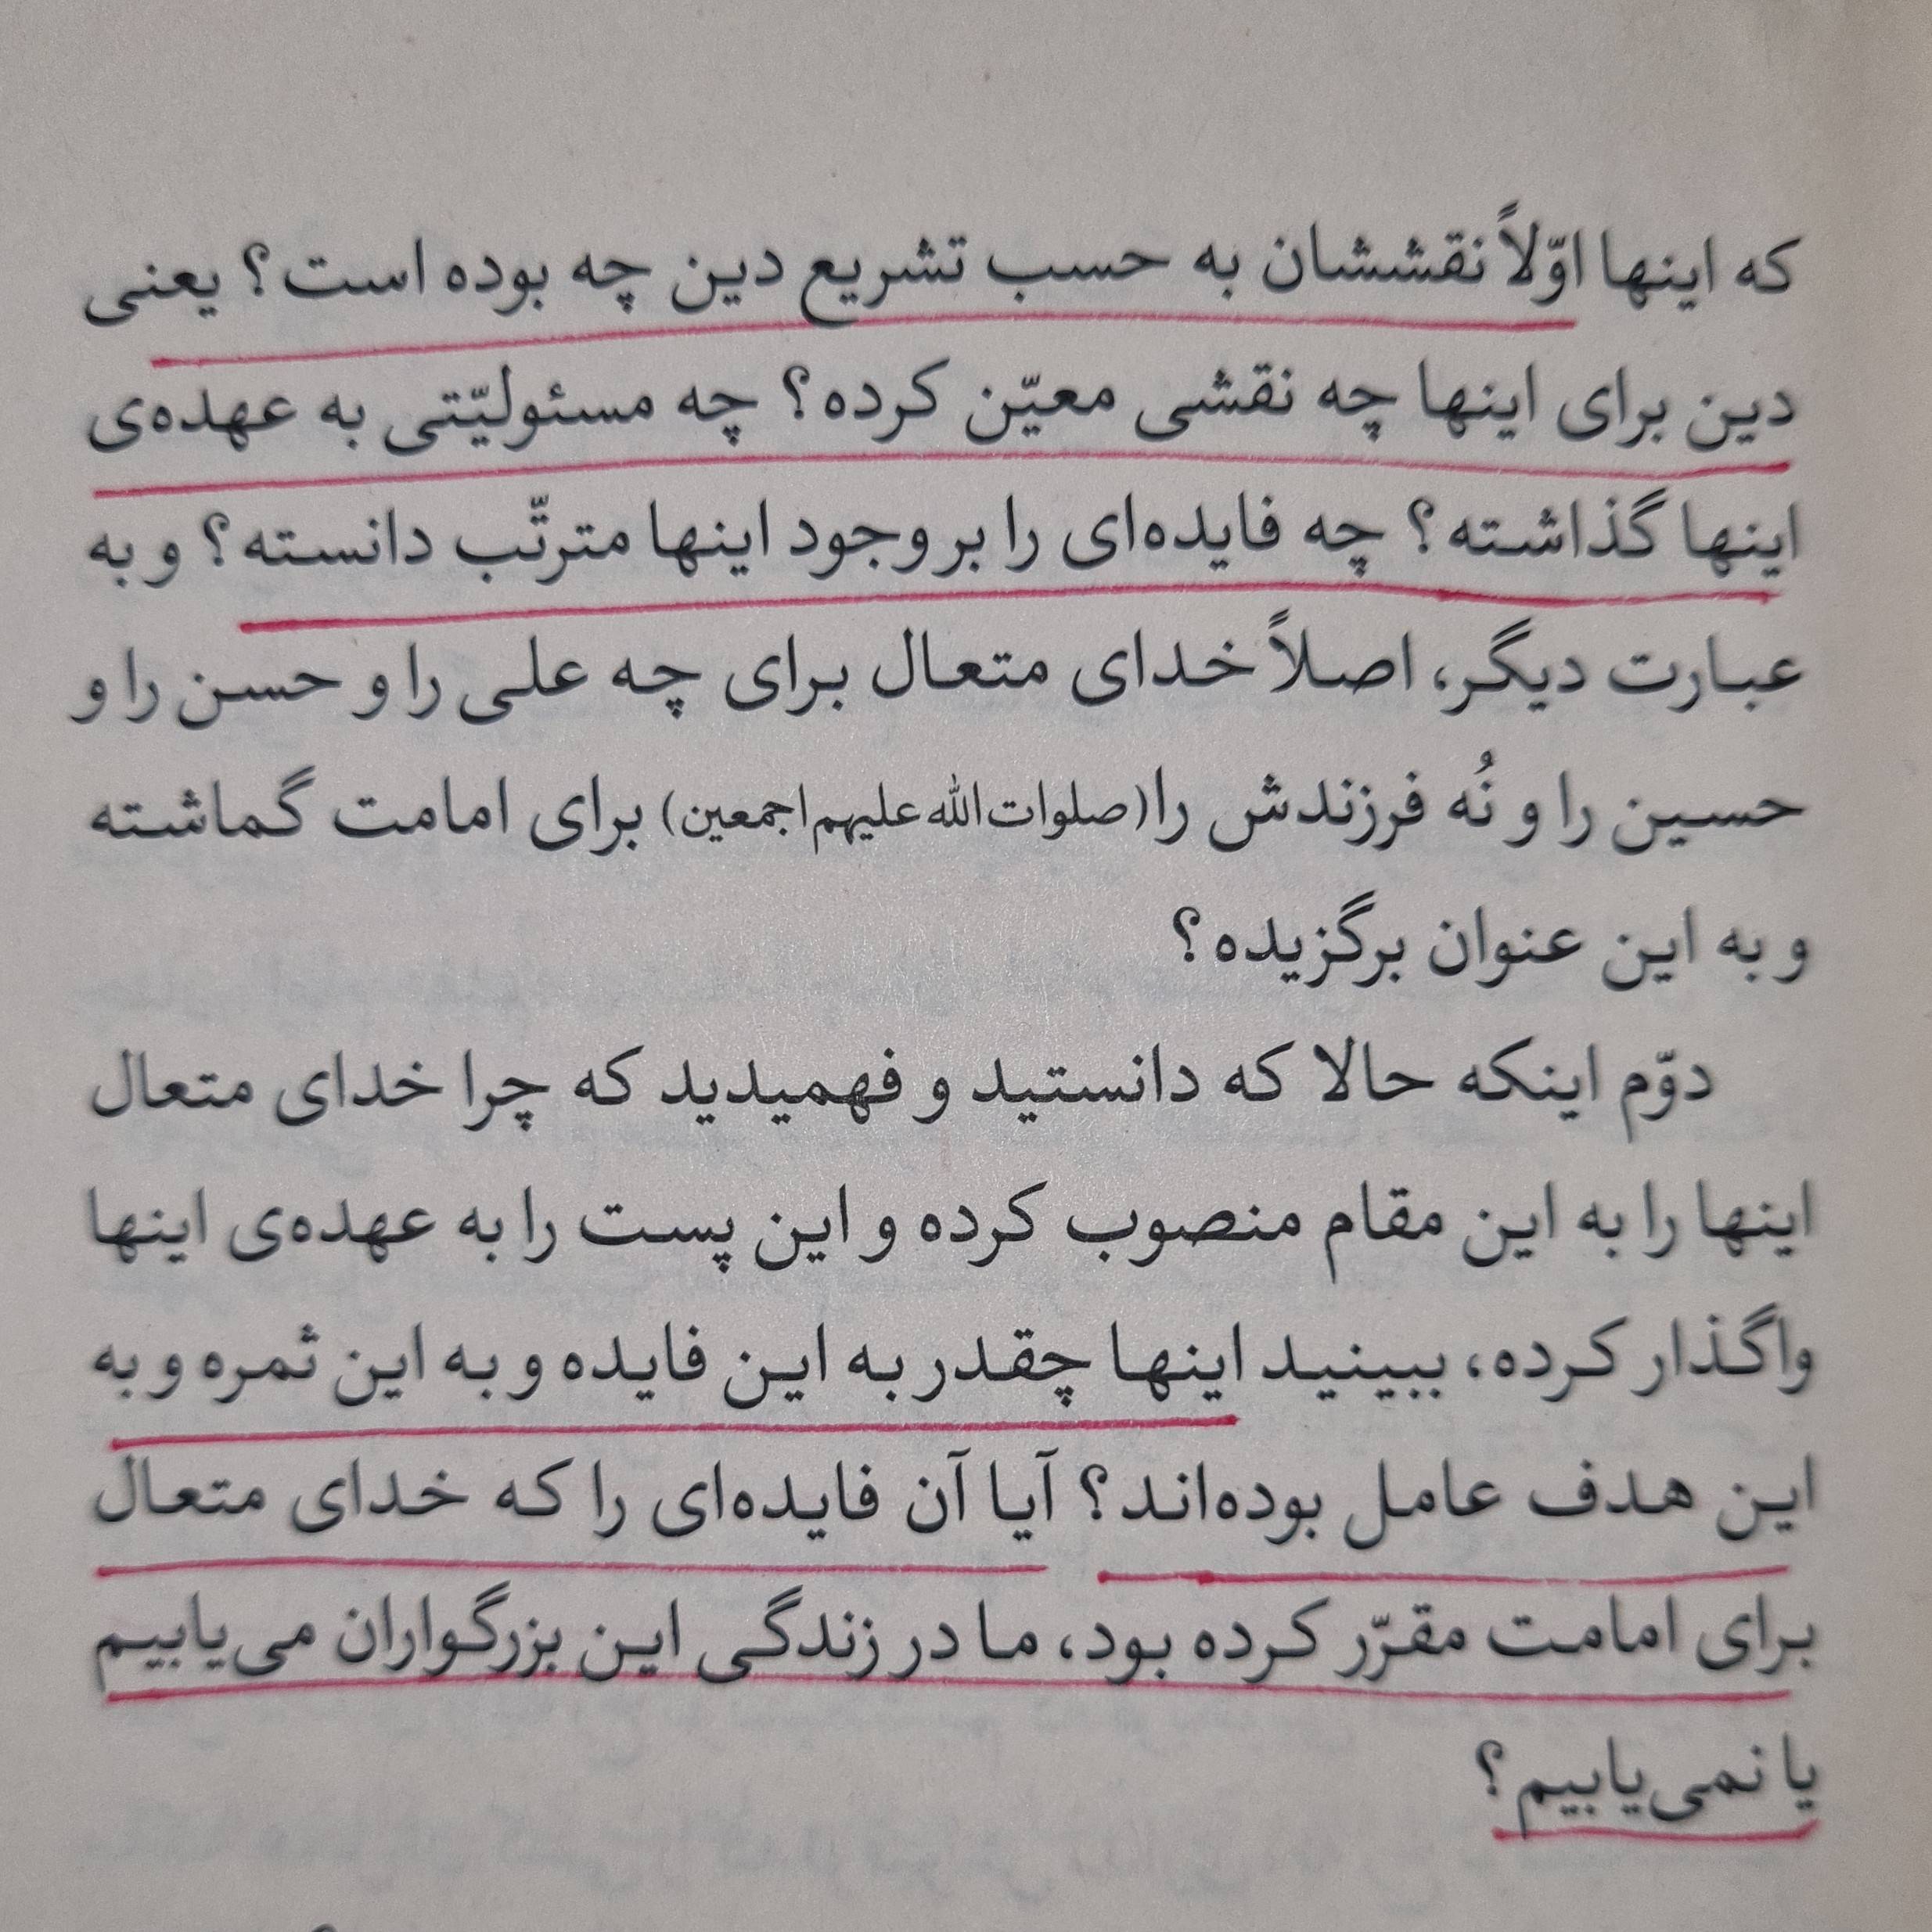 که اینها اوّلاً نقششان به حسب تشریع دین چه بوده است؟ یعنی
دین برای اینها چه نقشی معیّن کرده؟ چه مسئولیّتی به عهده‌ی
اینها گذاشته؟ چه فایده‌ای را بر وجود اینها مترتّب دانسته؟ و به
عبارت دیگر، اصلاً خدای متعال برای چه علی را و حسن را و
حسین را و نُه فرزندش را (صلوات‌الله‌علیهم‌اجمعین) برای امامت گماشته
و به این عنوان برگزیده؟
دوّم اینکه حالا که دانستید و فهمیدید که چرا خدای متعال
اینها را به این مقام منصوب کرده و این پست را به عهده‌ی اینها
واگذار کرده، ببینید اینها چقدر به این فایده و به این ثمره و به
این هدف عامل بوده‌اند؟ آیا آن فایده‌ای را که خدای متعال
برای امامت مقرّر کرده بود، ما در زندگی این بزرگواران می‌یابیم
یا نمی‌یابیم؟